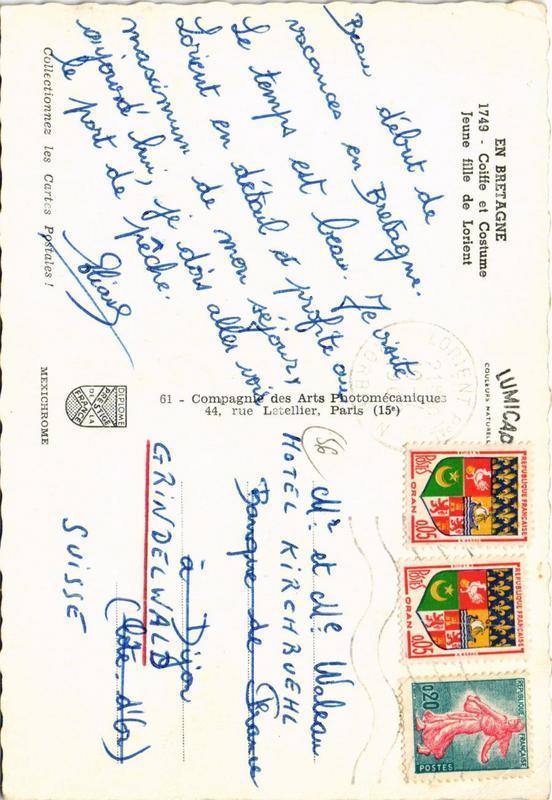 EN BRETAGNE
1749 - Coiffe et Costume
Jeune fille de Lorient
Beau début de
vacances en Bretagne.
Le temps est beau. Je visite
Lorient en détail et profite au
maximum de mon séjour,
aujourd'hui, je dois aller voir
le port de pêche.
Eliane
Collectionnez les Cartes Postales !
LUMICAP
COULEURS NATURELLES
61 - Compagnie des Arts Photomécaniques
44, rue Letellier, Paris (15e)
DIPLOME
DE LA
PRESTIGE
FRANCE
MEXICHROME
LORIENT
56
Mr et Me Waleau
HOTEL KIRCHBUEHL
Banque de France
à Dijon
GRINDELWALD
(Côte-d'Or)
SUISSE
REPUBLIQUE FRANÇAISE
POSTES
ORAN
0,05
REPUBLIQUE FRANÇAISE
POSTES
ORAN
0,05
REPUBLIQUE FRANÇAISE
0,20
POSTES